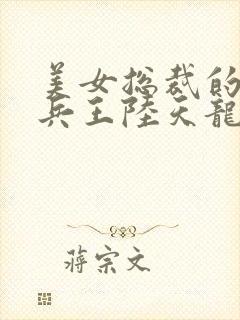 美女总裁的
兵王陆天龍
蒋宗文